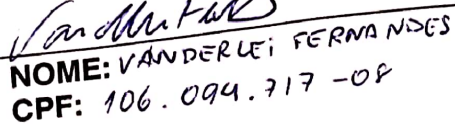 NOME: VANDERLEi FERNANDES
CPF: 106.094.717-08